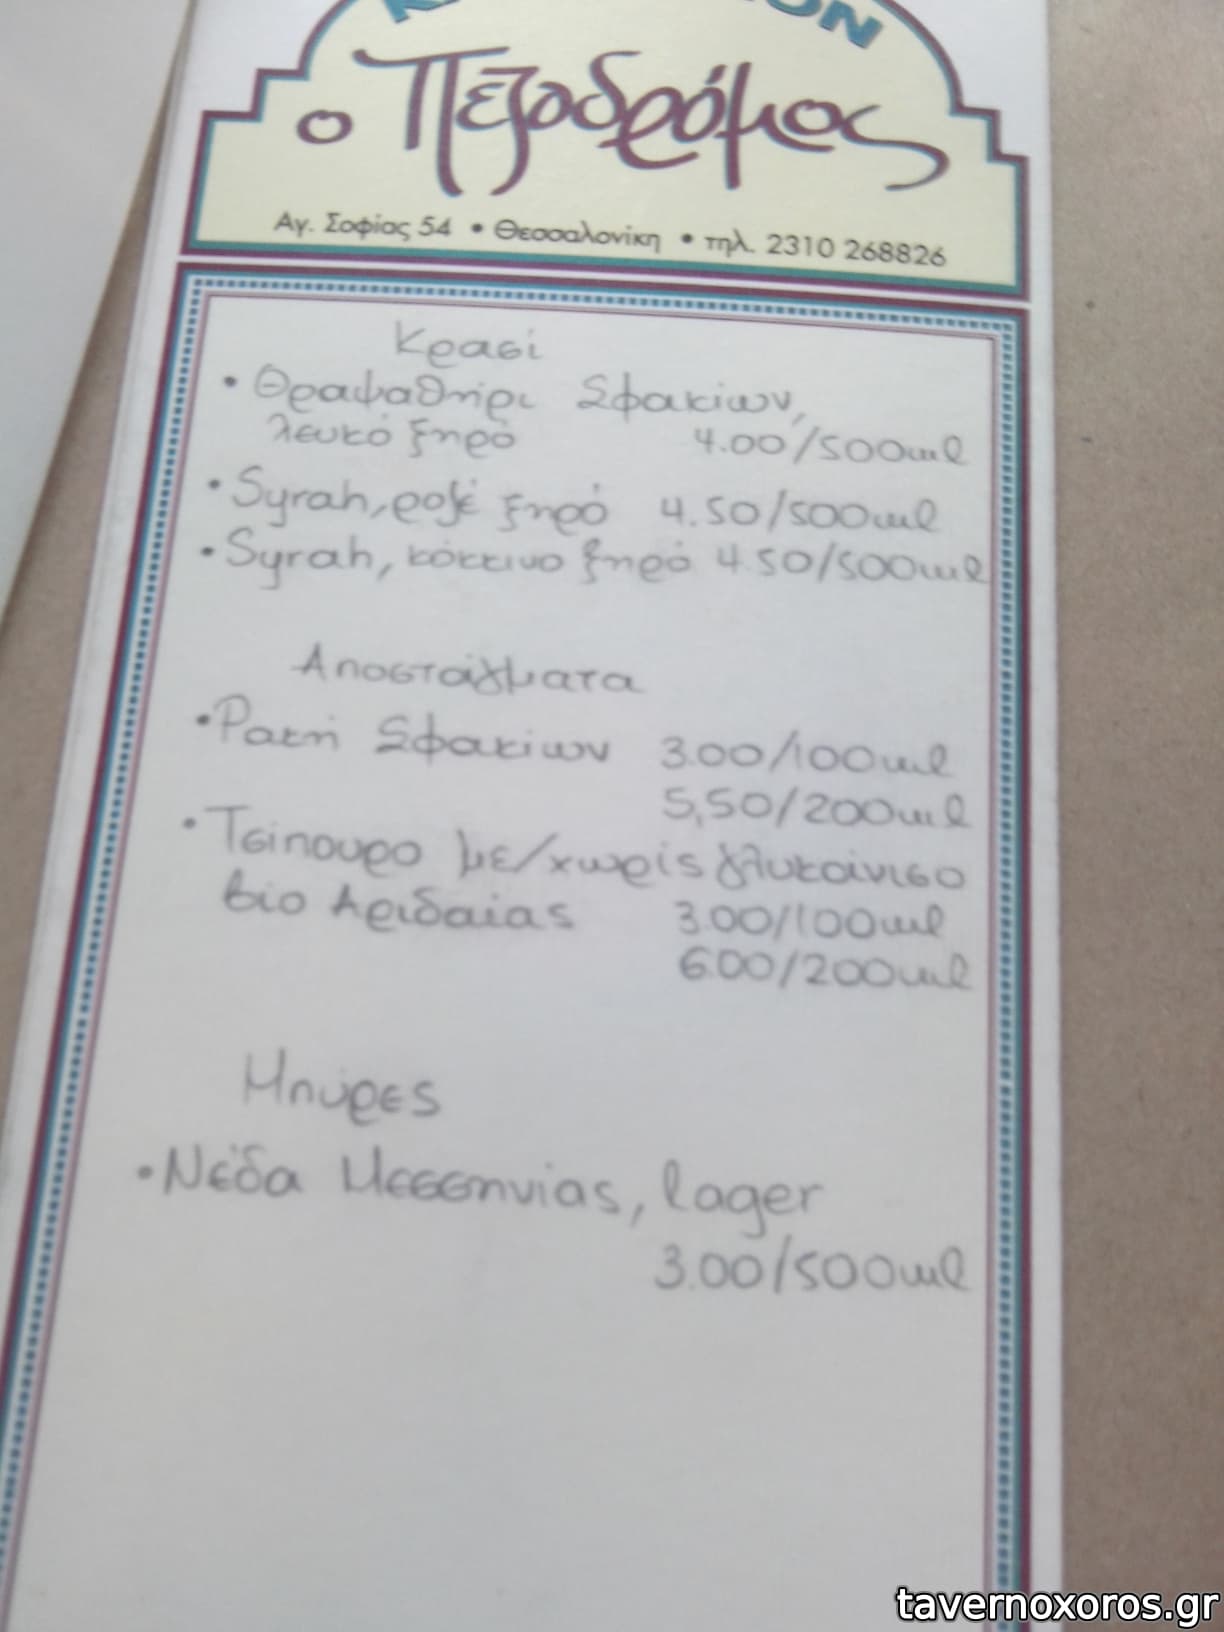 ο Πεζοδρόμος
Αγ. Σοφίας 54 • Θεσσαλονίκη • τηλ. 2310 268826
Κρασί
• Θραψαθήρι Σφακίων,
λευκό ξηρό 4.00/500ml
• Syrah, ροζέ ξηρό 4.50/500ml
• Syrah, κόκκινο ξηρό 4.50/500ml
Αποστάγματα
• Ρακή Σφακίων 3.00/100ml
5,50/200ml
• Τσίπουρο με/χωρίς γλυκάνισο
βιο Αριδαίας 3.00/100ml
6.00/200ml
Μπύρες
• Νέδα Μεσσηνίας, lager
3.00/500ml
tavernoxoros.gr